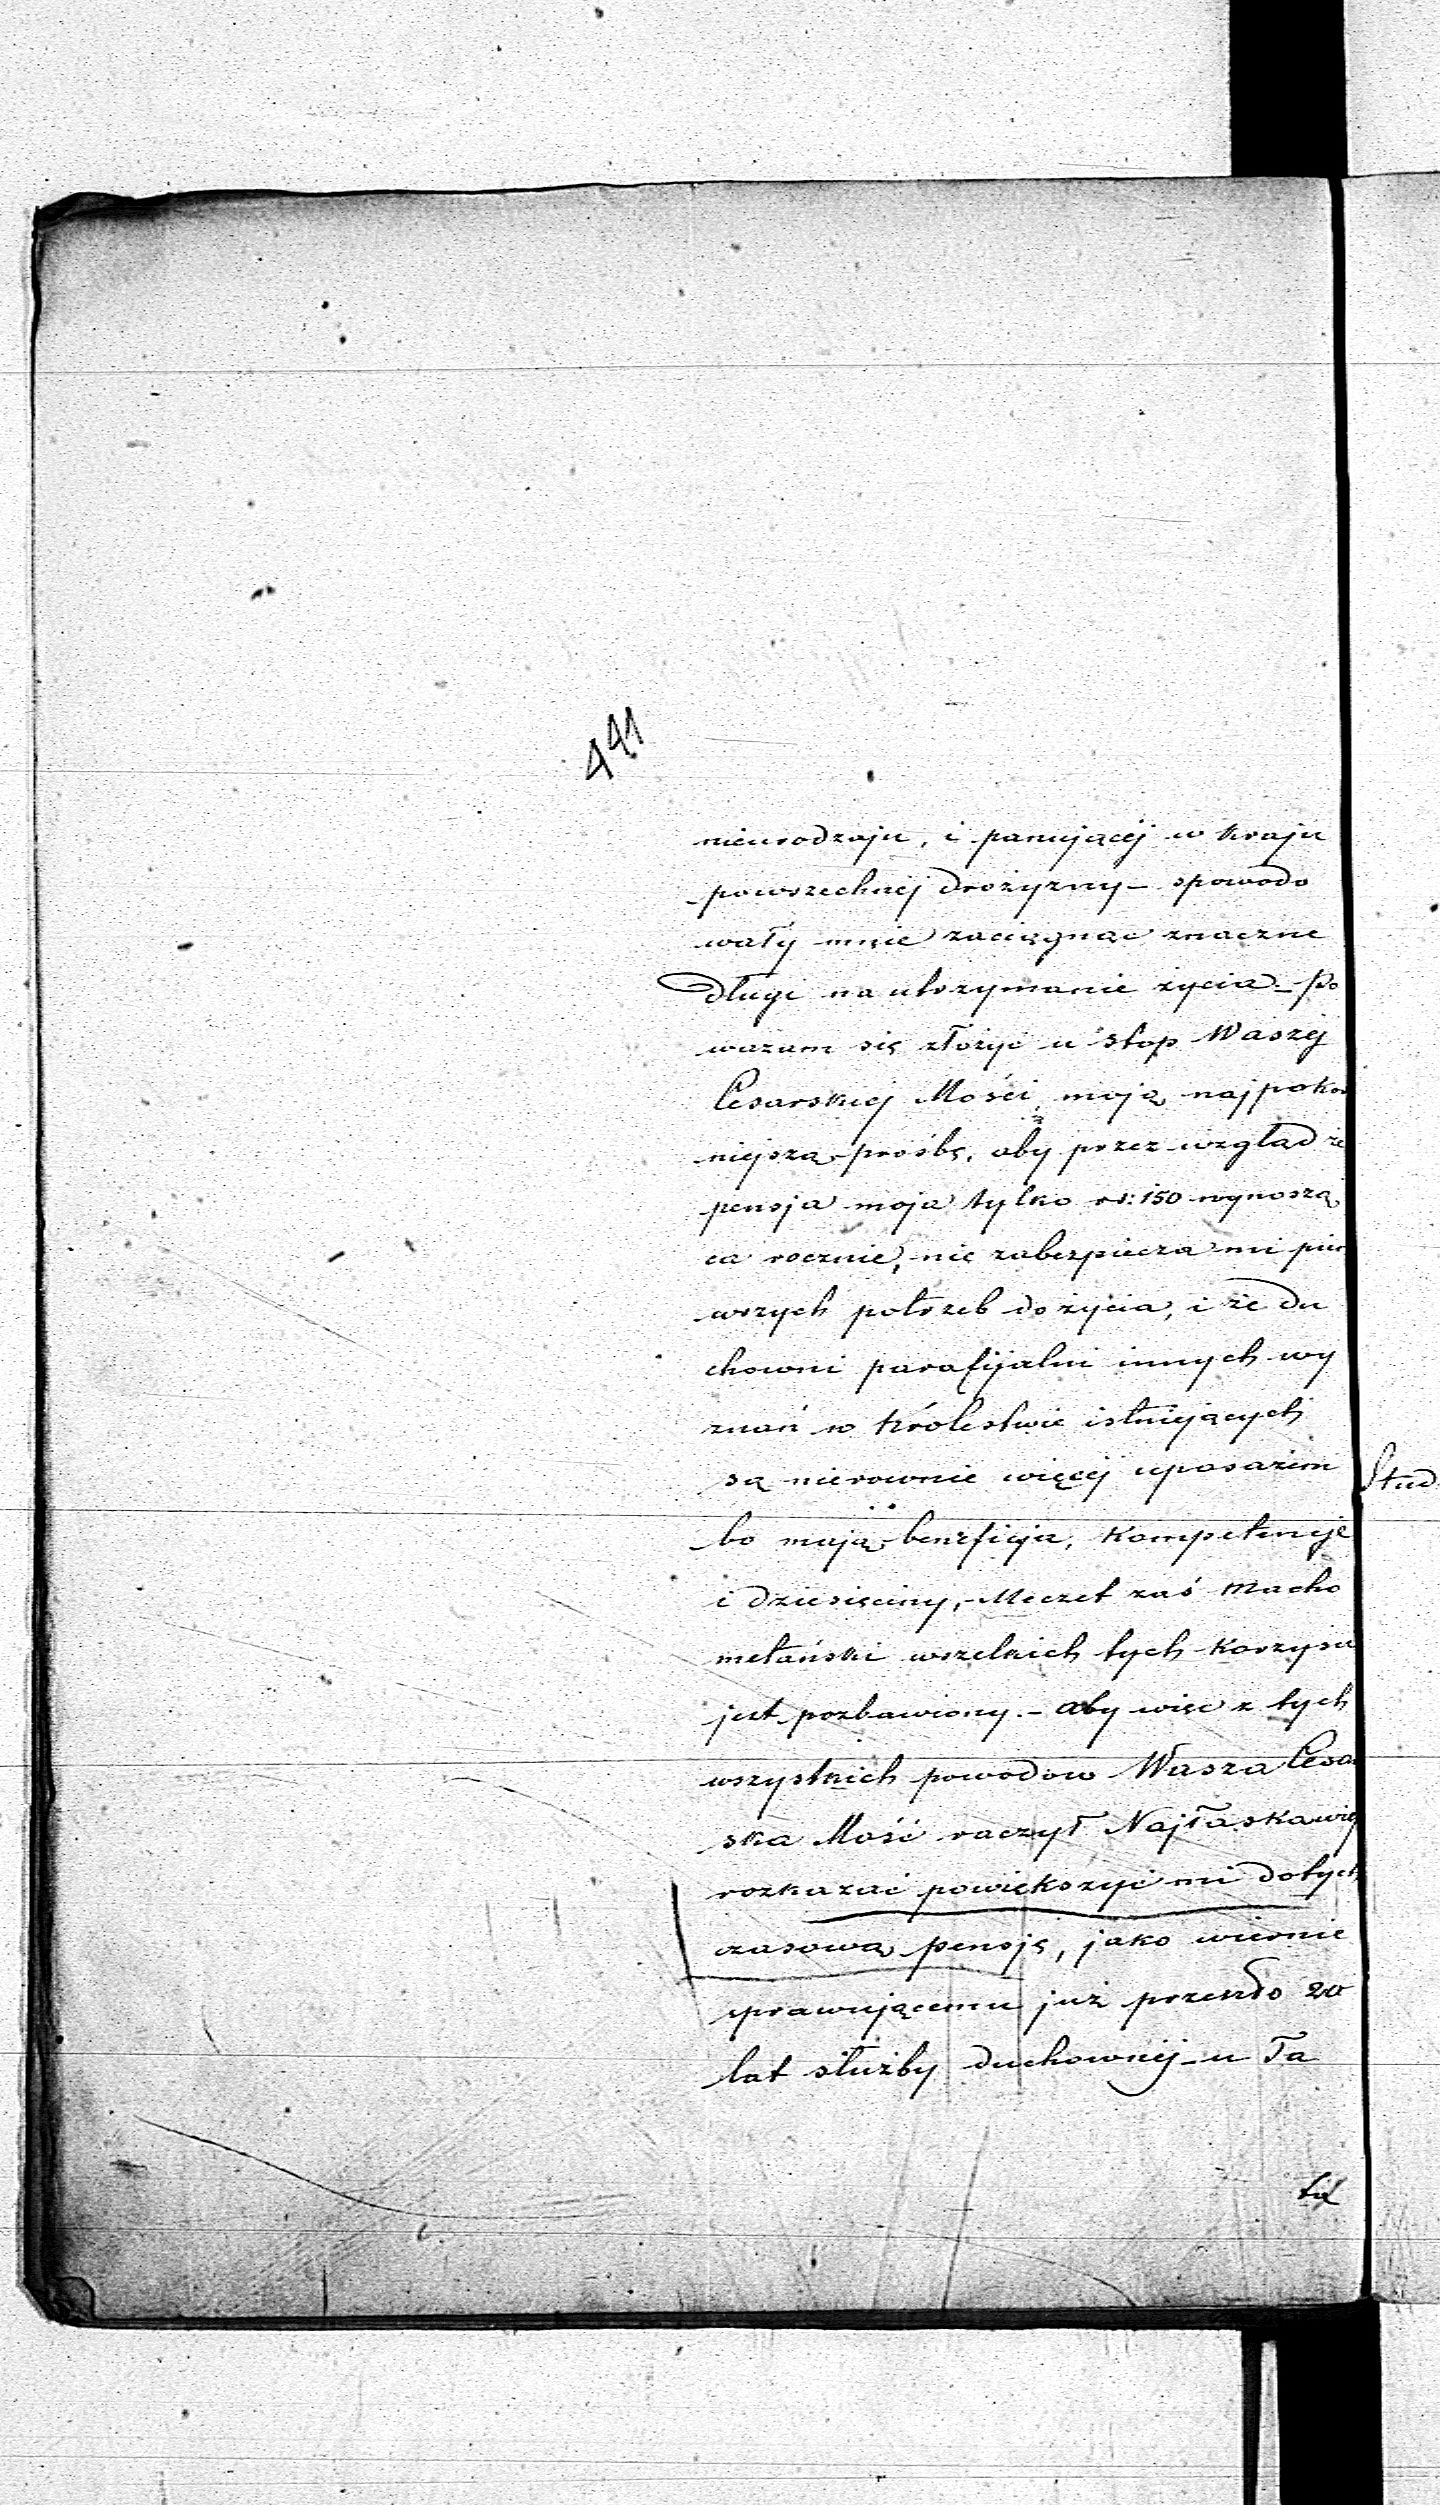 441
nieurodzaju, i panującéj w kraju
powszechnéj drożyzny – spowodo
wały mnie zaciągnąc znaczne
długi na utrzymanie życia – Po
ważam się złożyć u stop Waszéj
Cesarskiej Mości, moją najpokor
niejszą prośbę, aby przez wzgląd że
pensja moja tylko rs: 150 wynoszą
ca rocznie, nie zabezpiecza mi pier
wszych potrzeb do życia, i że du
chowni parafijalni innych wy
znań w Królestwie istniejących
są nierownie więcéj uposażeni
bo mają beneficija, kompetencje
i dziesięciny, – Meczet zaś Macho
metański wszelkich tych korzyści
jest pozbawiony. – Aby więc z tych
wszystkich powodow Wasza Cesar
ska Mość raczył Najłaskawiej
rozkazać powiększyć mi dotych
czasową pensję, jako wiernie
sprawującemu już przeszło 20
lat służby duchownéj – u Ta
Stud